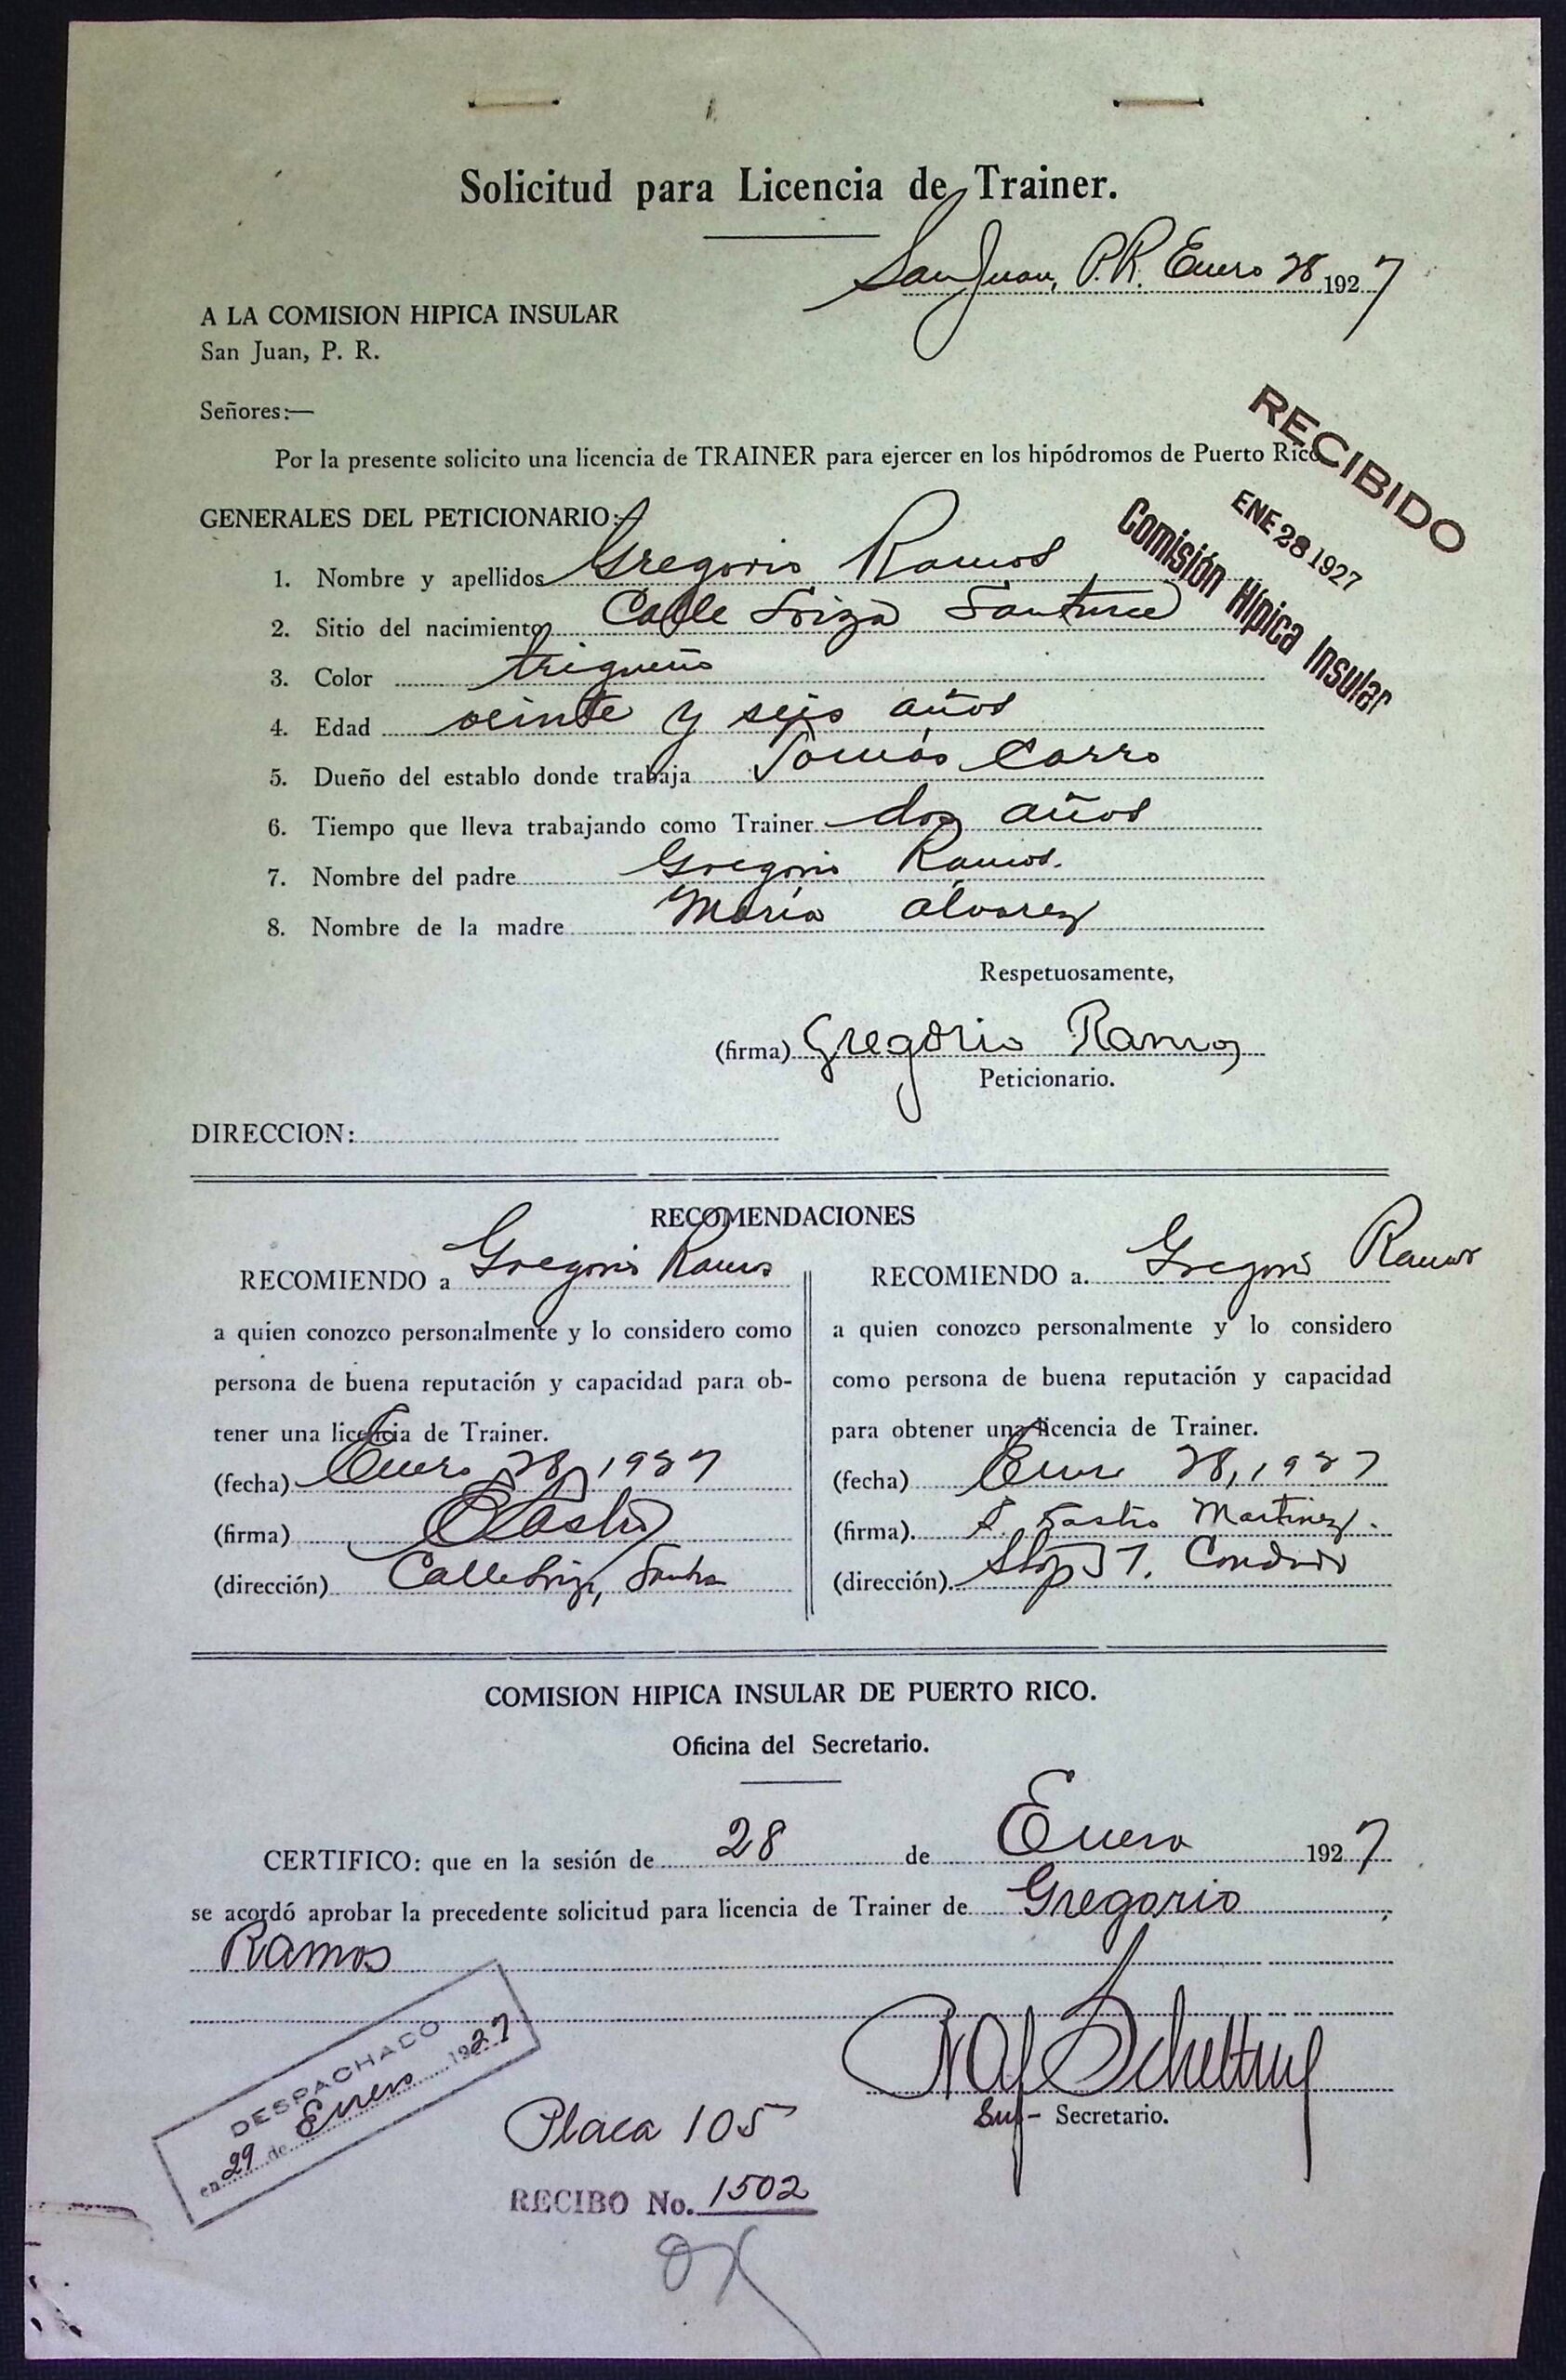 Solicitud para Licencia de Trainer.
San Juan, P.R. Enero 28 1927
A LA COMISION HIPICA INSULAR
San Juan, P. R.
Señores:—
Por la presente solicito una licencia de TRAINER para ejercer en los hipódromos de Puerto Rico
RECIBIDO
ENE 28 1927
Comisión Hípica Insular
GENERALES DEL PETICIONARIO:
1. Nombre y apellidos Gregorio Ramos
2. Sitio del nacimiento Calle Loiza Santurce
3. Color trigueño
4. Edad veinte y seis años
5. Dueño del establo donde trabaja Tomás Carro
6. Tiempo que lleva trabajando como Trainer dos años
7. Nombre del padre Gregorio Ramos.
8. Nombre de la madre María Alvarez
Respetuosamente,
(firma) Gregorio Ramos
Peticionario.
DIRECCION:
RECOMENDACIONES
RECOMIENDO a Gregorio Ramos
a quien conozco personalmente y lo considero como
persona de buena reputación y capacidad para ob-
tener una licencia de Trainer.
(fecha) Enero 28, 1927
(firma)
(dirección) Calle Loiza,
RECOMIENDO a. Gregorio Ramos
a quien conozco personalmente y lo considero
como persona de buena reputación y capacidad
para obtener una licencia de Trainer.
(fecha) Enero 28, 1927
(firma). Martinez.
(dirección). Stop
COMISION HIPICA INSULAR DE PUERTO RICO.
Oficina del Secretario.
CERTIFICO: que en la sesión de 28 de Enero 1927
se acordó aprobar la precedente solicitud para licencia de Trainer de Gregorio
Ramos
DESPACHADO
en 29 de Enero 1927
Sub- Secretario.
Placa 105
RECIBO No. 1502
OK